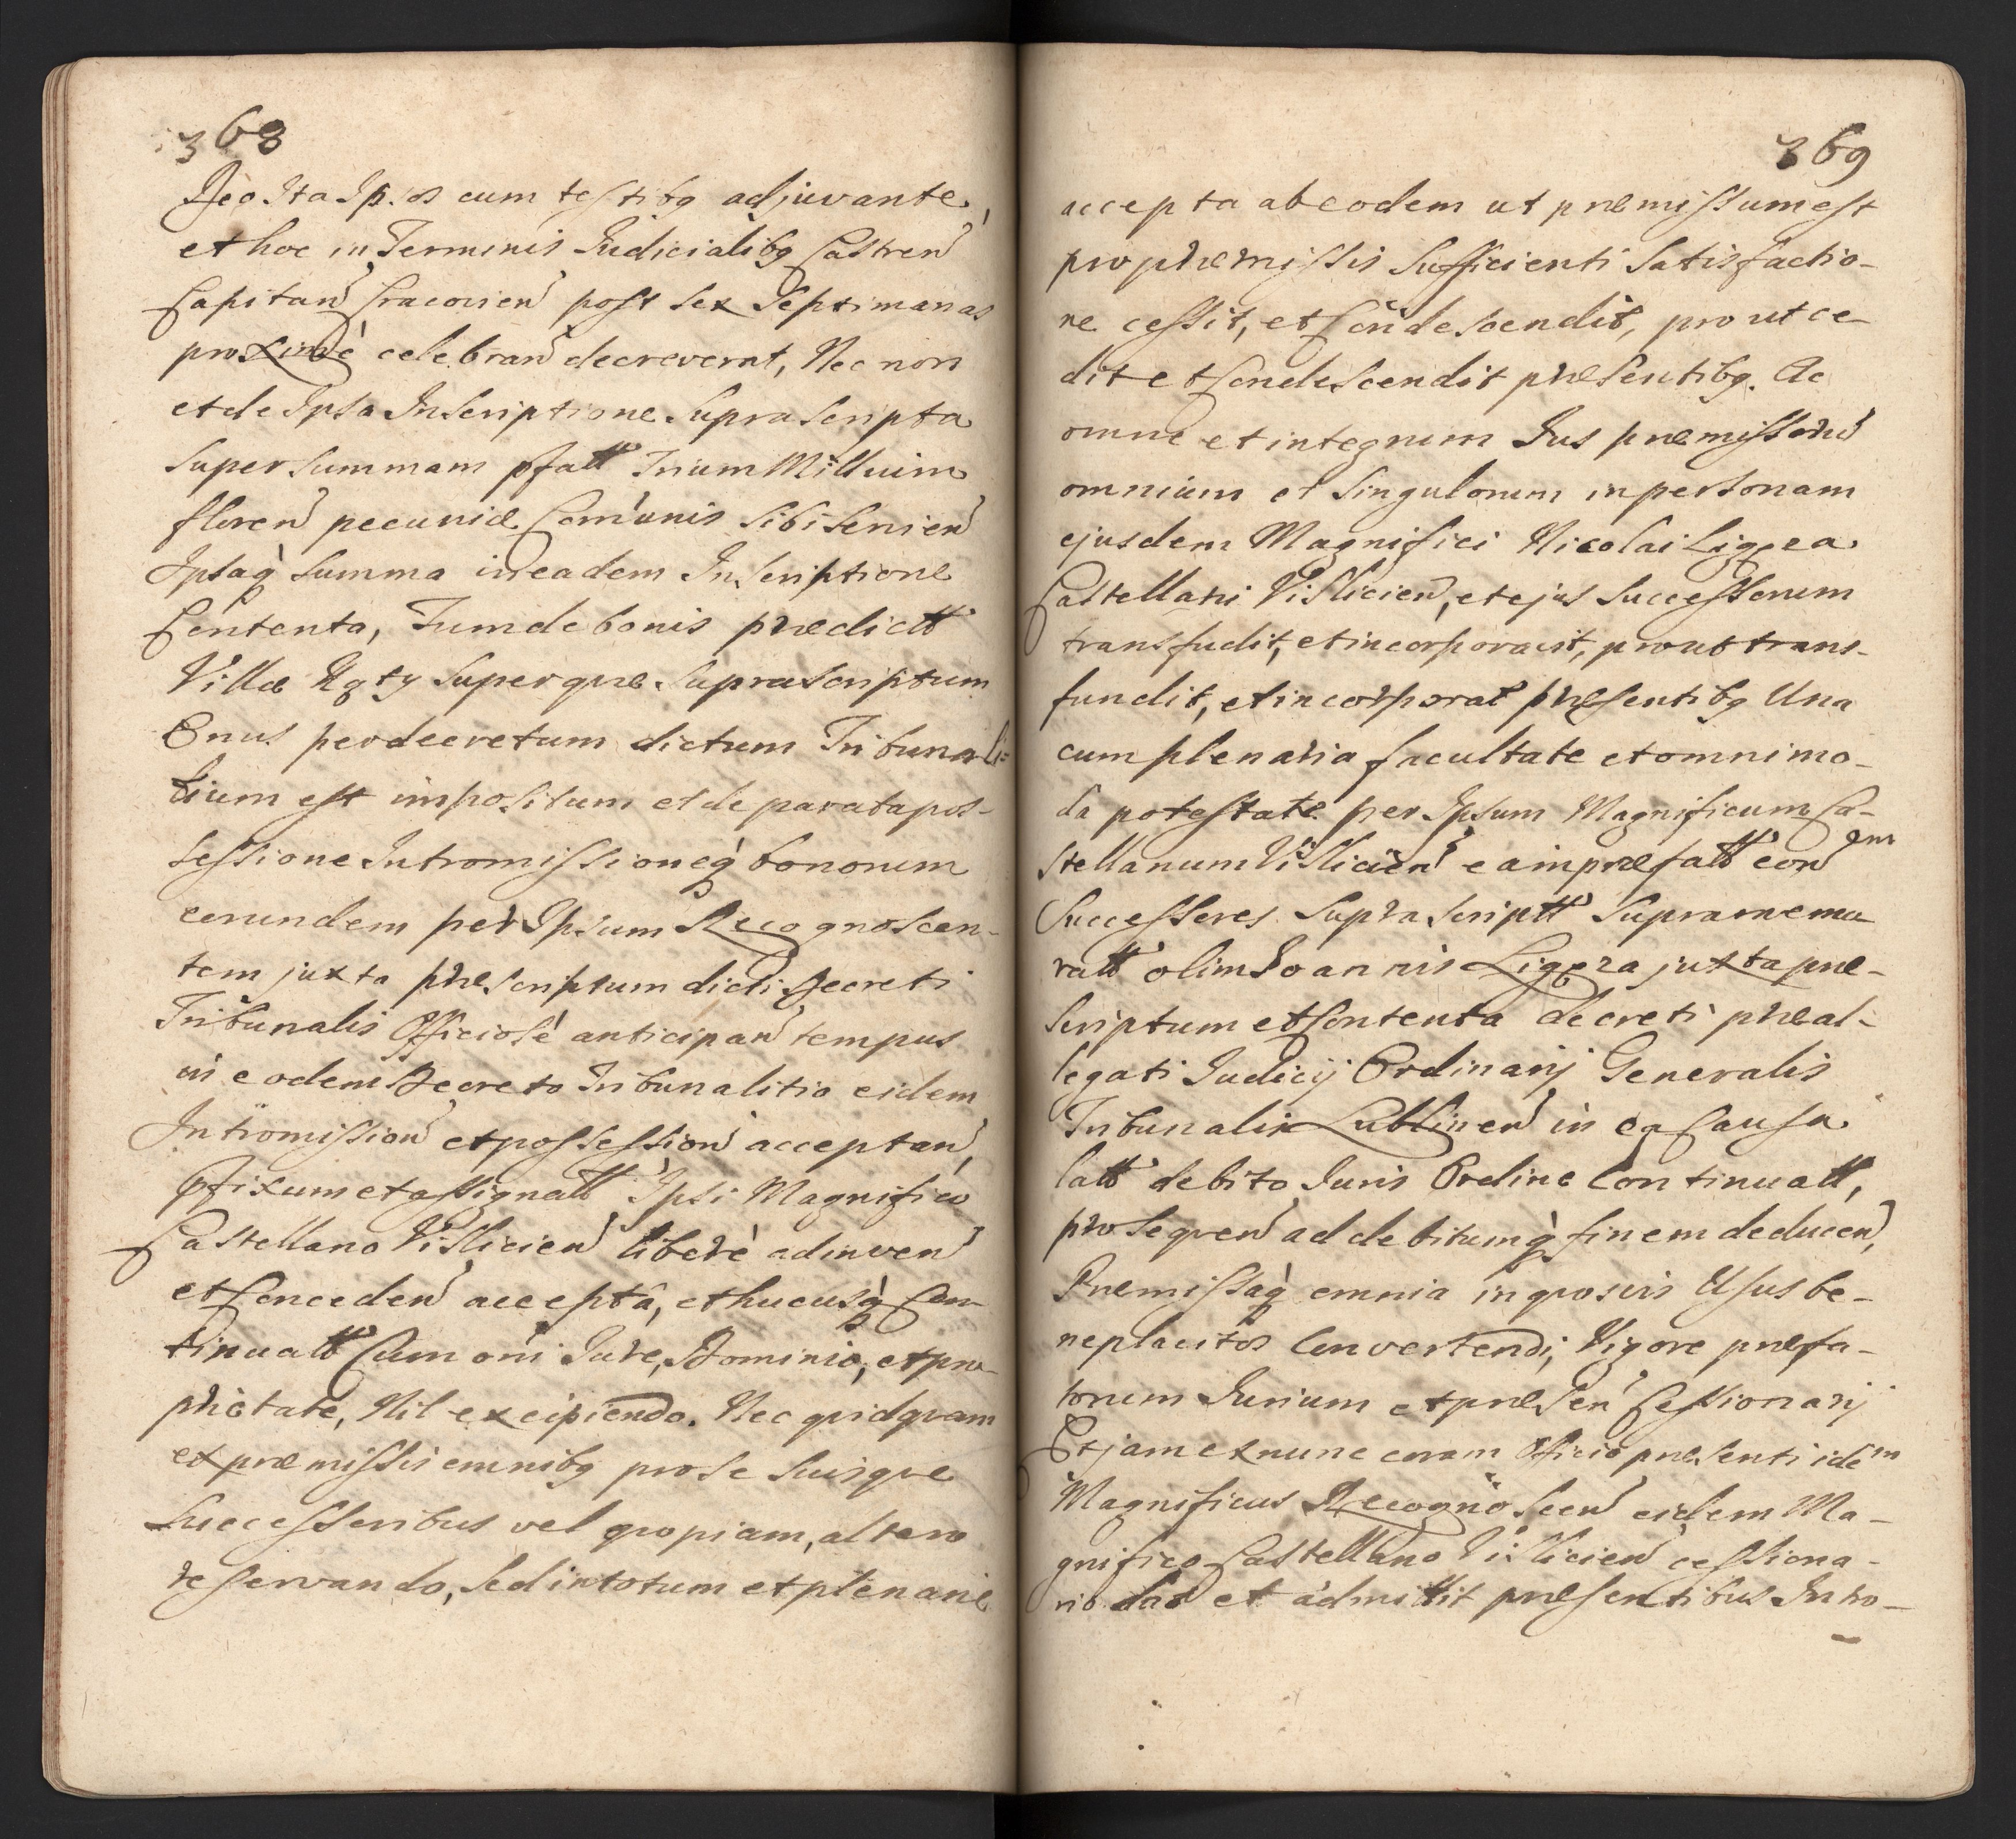 368
Deo Ita Ip.os cum testibq adjuvante,
et hoc in Terminis Judicialibq Castren
Capitan Cracovien post sex Septimanas
proximè celebran decreverat, Nec non
et de Ipsa Inscriptione Suprascripta
super summam pfatt Trium Millium
floren pecuniæ Com̃unis sibi servien
Ipsaq̀ summa in eadem Inscriptione
Contenta, Tum de bonis prædictt
Villæ Kąty superque suprascriptum
Onus per decretum dictum Tribunali=
tium est impositum et de parata pos-
sessione Intromissioneq̀ bonorum
eorundem per Ipsum Recognoscen-
tem juxta præscriptum dicti Decreti
Tribunalis Officiosè anticipan tempus
in eodem Decreto Tribunalitio eidem
Intromission et possession acceptan,
pfixum et assignatt Ipsi Magnifico
Castellano Vislicien liberè adinven
et Conceden acceptâ, et hucusq̀ Con-
tinuatt Cum om̃i Jure, Dominio, et pro-
prietate, Nil excipiendo. Nec quidquam
ex præmissis omnibq pro se suisque
Successoribus vel quopiam, altero
reservando, sed in totum et plenarie
369
accepta ab eodem ut præmissum est
pro præmissis sufficienti satisfactio-
ne cessit, et Condescendit, prout ce-
dit et Condescendit præsentibq. Ac
omne et integrum Jus præmissoru
omnium et singulorum in personam
ejusdem Magnifici Nicolai Ligęza
Castellani Vislicien, et ejus Successorum
transfudit, et incorporavit, prout trans-
fundit, et incorporat præsentibq Una
cum plenaria facultate et omnimo-
da potestate per Ipsum Magnificum Ca-
stellanum Vislicien eam præfatt eon dem
Successores suprascriptt supranume
ratt olim Joannis Ligęza juxta præ-
scriptum et Contenta decreti præal-
legati Judicij Ordinarij Generalis
Tribunalis Lublinen in ea Causa
latt debito Juris Ordine Continuatt,
prosequen ad debitumq̀ finem deducen,
Præmissaq̀ omnia in quosvis Usus be-
neplacitos Convertendi, Vigore præfa-
torum Jurium et præsen Cessionarij
Et jam ex nunc coram Officio præsenti idem
Magnificus Recognoscen eidem Ma-
gnifico Castellano Vislicien cessiona-
rio dat et admittit præsentibus Intro-